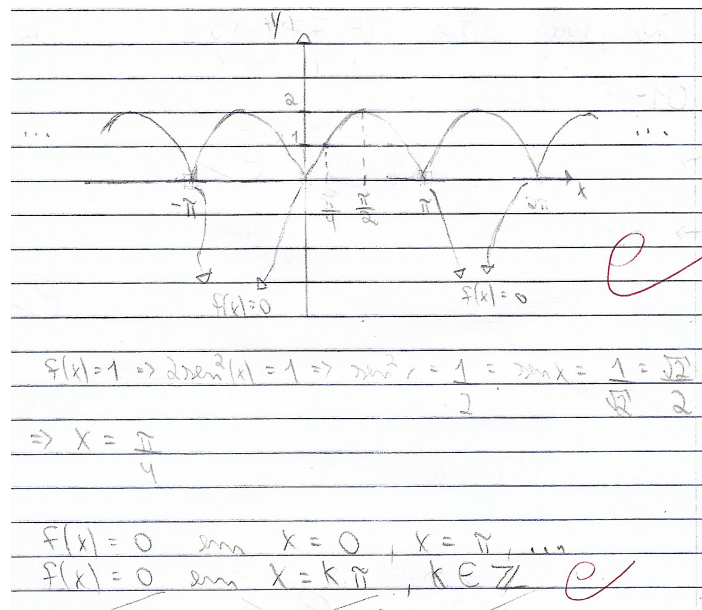 y
2
... 1 ...
-π π/4 π/2 π 2π x
f(x)=0 f(x)=0
f(x)=1 => 2sen²(x)=1 => sen² = 1/2 = senx = 1/√2 = √2/2
=> x = π/4
f(x)=0 em x=0, x=π, ...
f(x)=0 em x=kπ, k∈ℤ